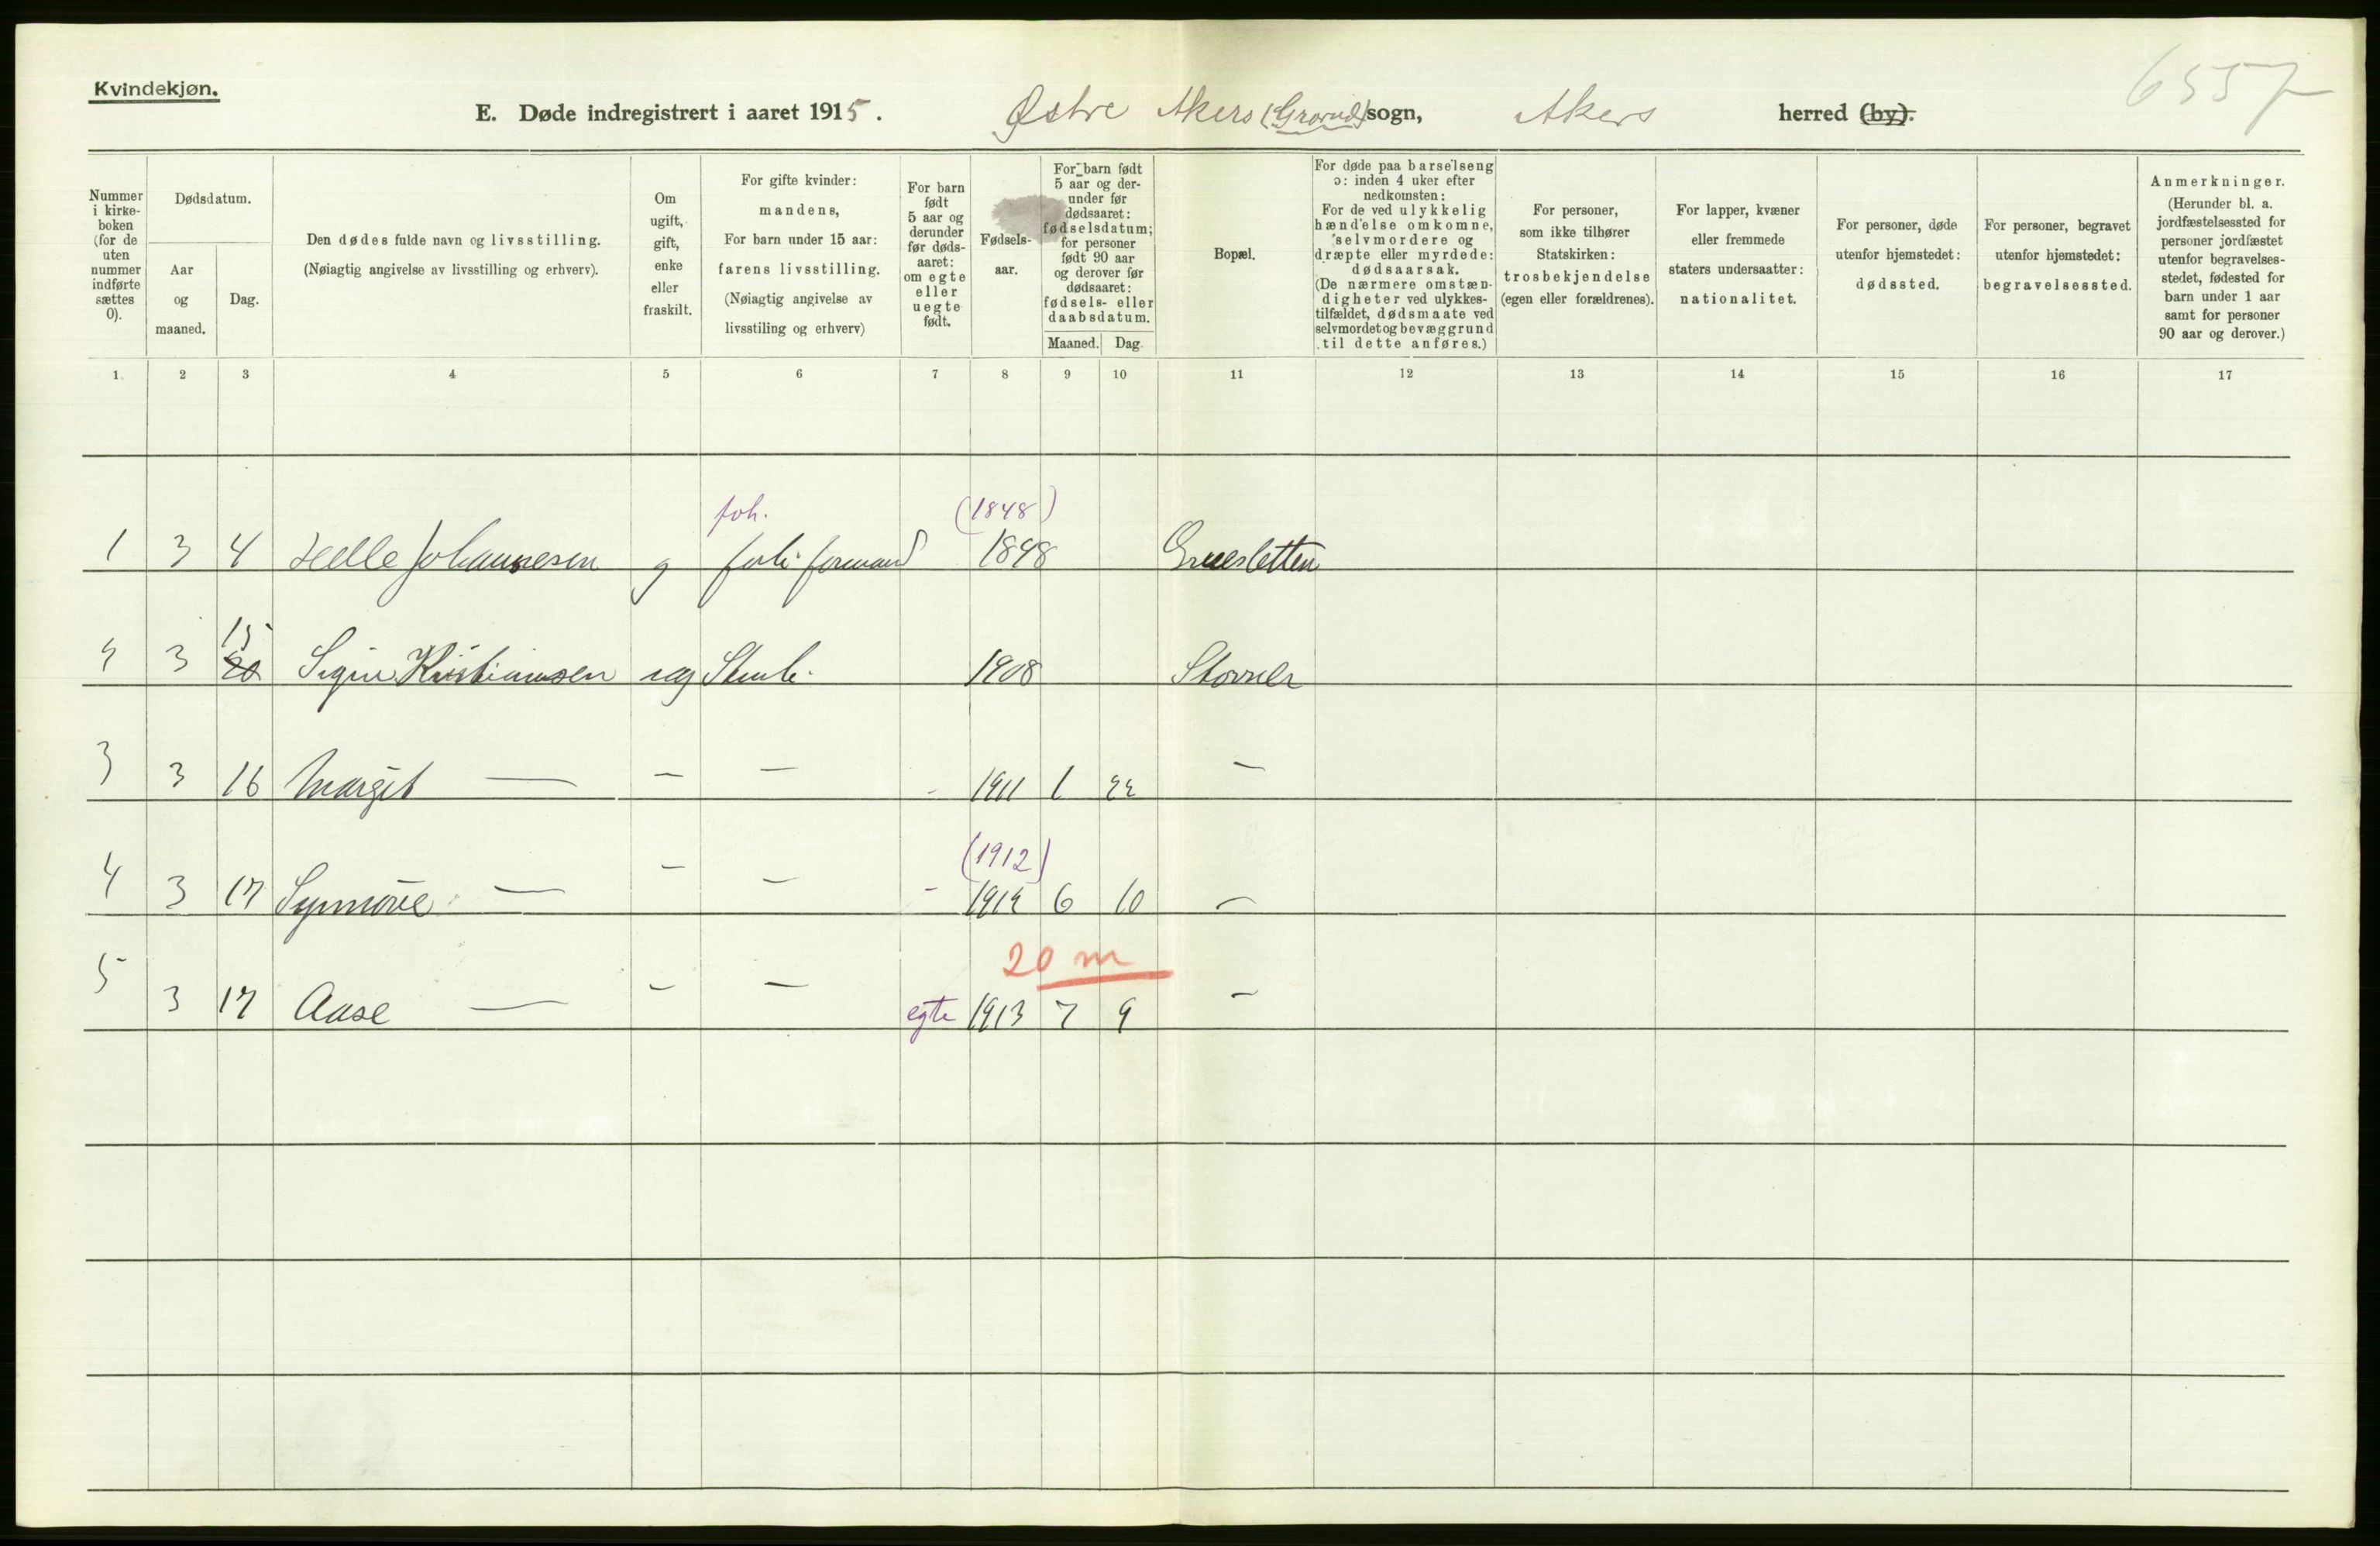 Kvindekjøn.
E. Døde indregistrert i aaret 1915. Østre Akers (Grorud) sogn, Akers herred (by).
6557
Nummer i kirke-boken (for de uten nummer indførte sættes 0).
Dødsdatum.
Aar og maaned.
Dag.
Den dødes fulde navn og livsstilling.
(Nøiagtig angivelse av livsstilling og erhverv).
Om ugift, gift, enke eller fraskilt.
For gifte kvinder: mandens,
For barn under 15 aar: farens livsstilling.
(Nøiagtig angivelse av livsstiling og erhverv)
For barn født 5 aar og derunder før døds-aaret: om egte eller uegte født.
Fødsels-aar.
For barn født 5 aar og der-under før dødsaaret: fødselsdatum; for personer født 90 aar og derover før dødsaaret: fødsels- eller daabsdatum.
Maaned. Dag.
Bopæl.
For døde paa barselseng ɔ: inden 4 uker efter nedkomsten:
For de ved ulykkelig hændelse omkomne, selvmordere og dræpte eller myrdede: dødsaarsak.
(De nærmere omstæn-digheter ved ulykkes-tilfældet, dødsmaate ved selvmordet og bevæggrund til dette anføres.)
For personer, som ikke tilhører Statskirken: trosbekjendelse (egen eller forældrenes).
For lapper, kvæner eller fremmede staters undersaatter: nationalitet.
For personer, døde utenfor hjemstedet: dødssted.
For personer, begravet utenfor hjemstedet: begravelsessted.
Anmerkninger.
(Herunder bl. a. jordfæstelsessted for personer jordfæstet utenfor begravelses-stedet, fødested for barn under 1 aar samt for personer 90 aar og derover.)
1 2 3 4 5 6 7 8 9 10 11 12 13 14 15 16 17
(1848)
1 3 4 Helle Johannesen g formand 1848
15
2 3 20 Signe Kristiansen ug Stenh. 1908 Stovner
3 3 16 Margit — — — - 1911 1 22 —
(1912)
4 3 17 Synnöve — — — - 1912 6 10 —
20 m
5 3 17 Aase — — — egte 1913 7 9 —